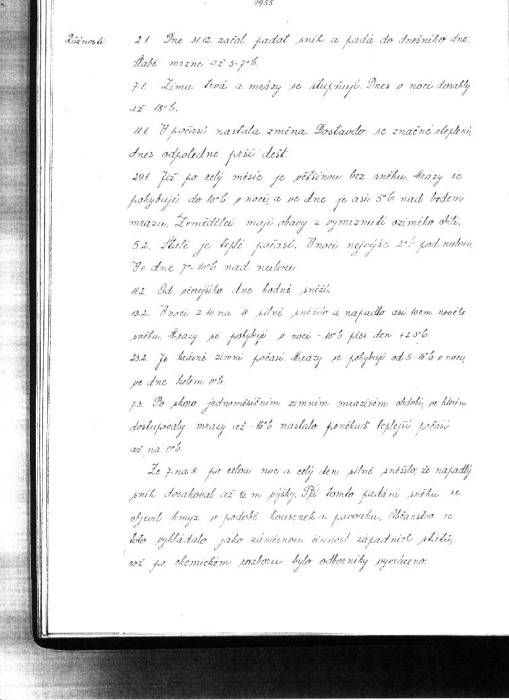 1955
Různosti. 2.1. Dne 31.12. začal padat sníh a padá do dnešního dne.
Slabě mrzne až 5-7°C.
7.1. Zima trvá a mrazy se stupňují. Dnes v noci dosáhly
až 18°C.
11.1. V počasí nastala změna. Dostavilo se značné oteplení,
dnes odpoledne prší déšť.
29.1. Již po celý měsíc je většinou bez sněhu. Mrazy se
pohybují do 10°C v noci, a ve dne je asi 5°C nad bodem
mrazu. Zemědělci mají obavy z vymrznutí ozimého obilí.
5.2. Stále je teplé počasí. V noci nejvýše 2°C pod nulou.
Ve dne 7°-10°C nad nulou.
11.2. Od včerejšího dne hodně sněží.
13.2. V noci z 10 na 11 silně sněžilo a napadlo asi 10cm nového
sněhu. Mrazy se pohybují v noci - 10°C přes den +2-3°C.
23.2. Je krásné zimní počasí. Mrazy se pohybují od 5-15°C v noci,
ve dne kolem 0°C.
7.3. Po skoro jednoměsíčním zimním mrazivém období, ve kterém
dostupovaly mrazy až -16°C nastalo poněkud teplejší počasí
až na 0°C.
Ze 7. na 8. po celou noc a celý den silně sněžilo, že napadlý
sníh dosahoval až ½ m výšky. Při tomto padání sněhu se
objevil hmyz v podobě housenek a pavouků. Občanstvo si
toto vykládalo jako záměrnou činnost západních států,
což po chemickém rozboru bylo odborníky vyvráceno.